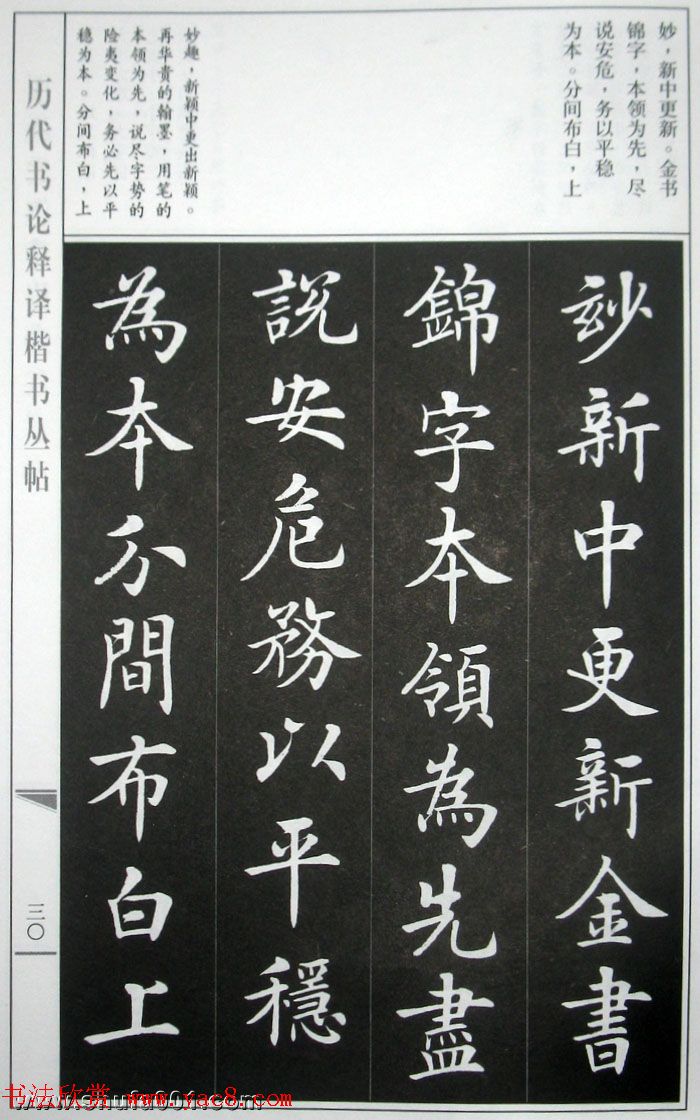 妙，新中更新。金书
锦字，本领为先，尽
说安危，务以平稳
为本。分间布白，上
妙趣，新颖中更出新颖。
再华贵的翰墨，用笔的
本领为先，说尽字势的
险夷变化，务必先以平
稳为本。分间布白，上
玅新中更新金書
錦字本領為先盡
說安危務以平穩
為本分間布白上
历代书论释译楷书丛帖
三〇
书法欣赏 www.yac8.com